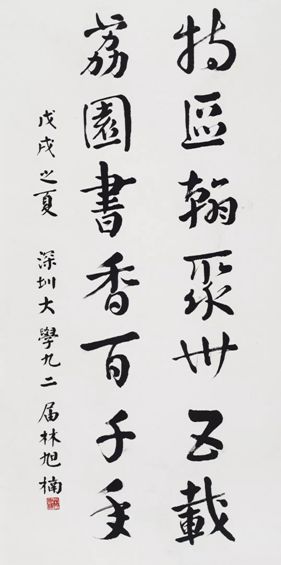 特區翰聚卅五載
荔園書香百千年
戊戌之夏 深圳大學九二届林旭楠